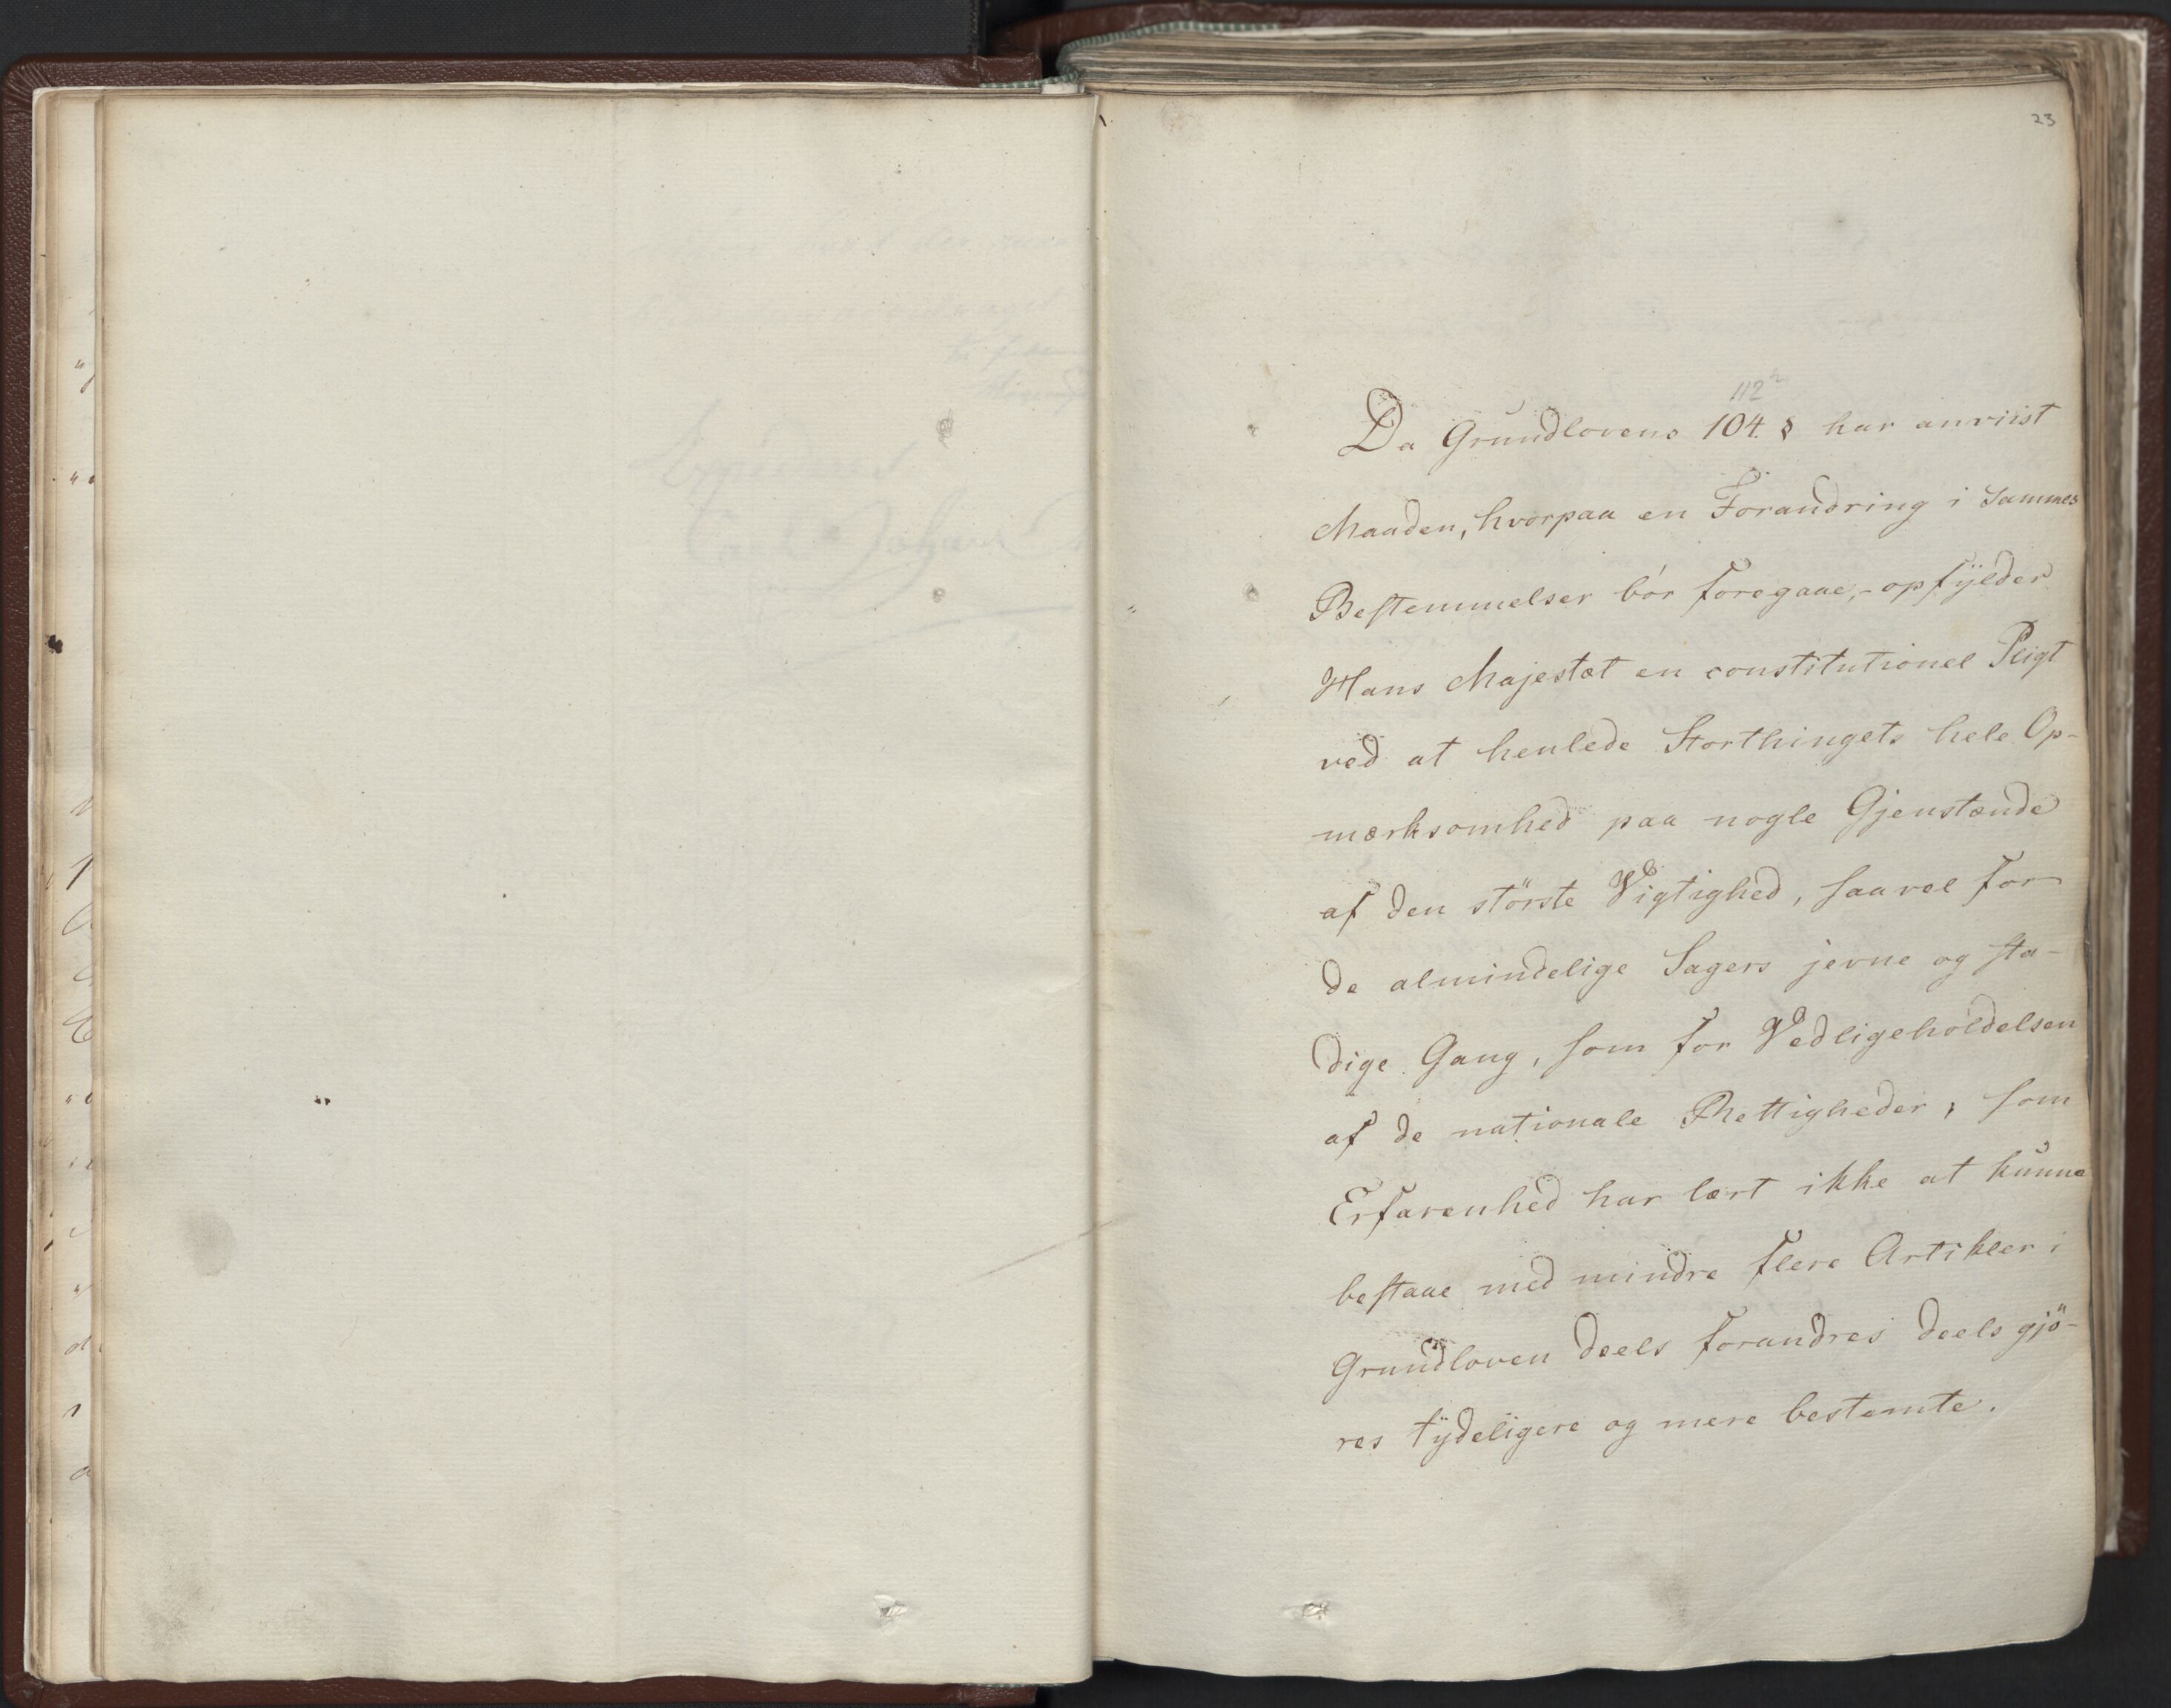 23
112
Da Grundlovens 104. § har anviist
Maaden, hvorpaa en Forandring i Sammes
Bestemmelser bör foregaae, - opfÿlder
Hans Majestæt en constitutionel Pligt
ved at henlede Storthingets hele Op-
mærksomhed paa nogle Gjenstænde
af den störste Vigtighed, saavel for
de almindelige Sagers jevne og sta-
dige Gang, som for Vedligeholdelsen
af de nationale Rettigheder, som
Erfarenhed har lært ikke at kunne
bestaae med mindre flere Artikler i
Grundloven deels forandres deels gjö-
res tÿdeligere og mere bestemte.